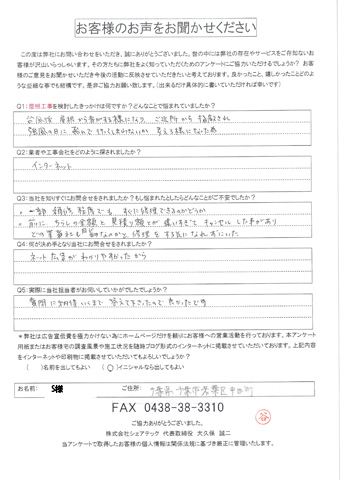 お客様のお声をお聞かせください
この度は弊社にお問い合わせをいただき、誠にありがとうございました。世の中には弊社の存在やサービスをご存知ないお客様が沢山いらっしゃいます。その方たちに弊社をよく知っていただくためのアンケートにご協力いただけるでしょうか？お客様のご意見をお聞かせいただき今後の活動に反映させていただきたいと考えております。良かったこと、嬉しかったことどのような些細な事でも結構です。是非ご協力お願い致します。(出来るだけ具体的に書いていただければ幸いです)
Q1:屋根工事を検討したきっかけは何ですか？どんなことで悩まれていましたか？
台風後 屋根から音がする様になり ご近所から指摘され
強風の日に
Q2:業者や工事会社をどのように探されましたか？
インターネット
Q3:当社を知りすぐにお問合せをされましたか？もし悩まれたとしたらどんなことがご不安でしたか？
すぐに修理できるのかどうか
金額と見積り額とが違いすぎて キャンセルした事があり
Q4:何が決め手となり当社にお問合せをされましたか？
ネット広告が わかりやすかったから
Q5:実際に当社担当者がお伺いしていかがでしたでしょうか？
質問に納得いくまで 答えて下さったので 良かったです
＊弊社は広告宣伝費を極力かけない為にホームページだけを頼りにお客様への営業活動を行っております。本アンケート用紙またはお客様宅の調査風景や施工状況を随時ブログ形式のインターネットに掲載させていただいております。上記内容をインターネットや印刷物に掲載させていただいてもよろしいでしょうか？
( )名前を出してもよい (○)イニシャルなら出してもよい
お名前: S様 ご住所: 千葉県千葉市若葉区
FAX 0438-38-3310
ご協力ありがとうございました。
株式会社シェアテック 代表取締役 大久保 誠二
当アンケートで取得したお客様の個人情報は関係法規に基づき厳正に管理いたします。